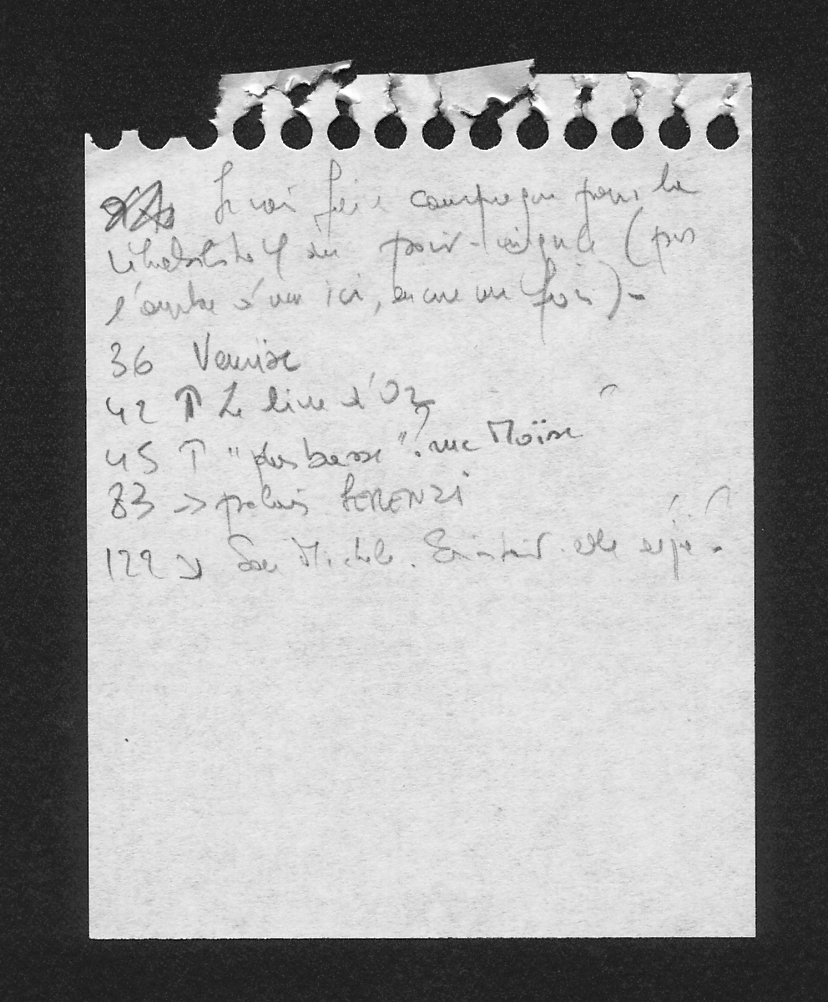 Je vais faire campagne pour la
réhabilitation du point-virgule (pas
l'ombre d'un ici, encore une fois) -
36 Venise
42 ↑ Le livre d'Oz
45 ↑ "plus basse". rue Moïse
83 → palais LORENZI
122 ↘ San Michele. était-elle